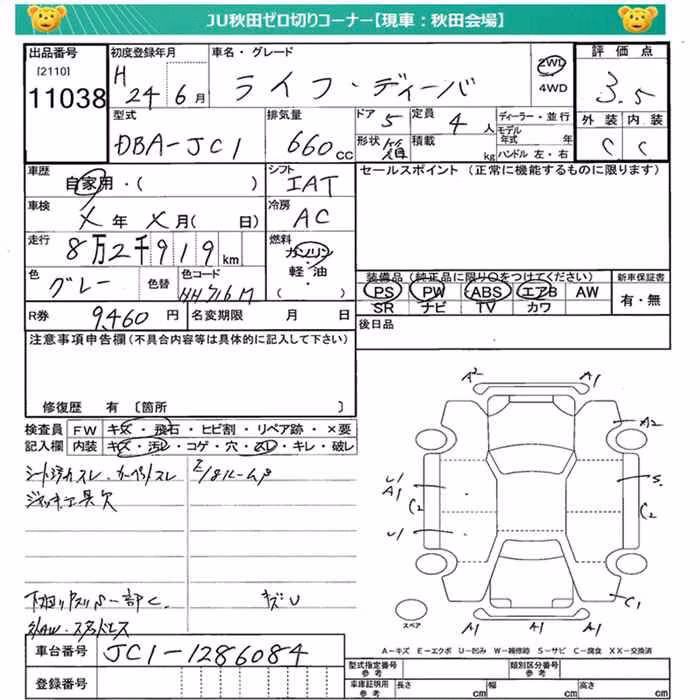 JU秋田ゼロ切りコーナー【現車：秋田会場】
出品番号
[2110]
11038
初度登録年月
H 24 年 6 月
車名・グレード
ライフ・ディーバ
2WD
4WD
評価点
3.5
外装 内装
C C
型式
DBA-JC1
排気量
660 cc
ドア 5
定員 4 人
形状
積載 kg
ディーラー・並行
モデル年式 年
ハンドル 左・右
車歴
自家用・( )
シフト
IAT
セールスポイント (正常に機能するものに限ります)
車検
X 年 X 月( 日)
冷房
AC
走行
8万2千919 km
燃料
ガソリン
軽・油
( )
色
グレー
色替
色コード
NH716M
装備品 (純正品に限り○をつけてください)
PS PW ABS エアB AW
SR ナビ TV カワ
新車保証書
有・無
R券 9,460 円
名変期限 月 日
後日品
注意事項申告欄(不具合内容等は具体的に記入して下さい)
修復歴 有 〔箇所 〕
検査員記入欄
FW キズ・飛石・ヒビ割・リペア跡・×要
内装 キズ・汚レ・コゲ・穴・スレ・キレ・破レ
ジャッキ工具欠
キズU
A2 A1
A2
U1
A1
C2
U1
S
C2
C1
A1 A1 A1
スペア
A-キズ E-エクボ U-凹み W-補修跡 S-サビ C-腐食 XX-交換済
車台番号
JC1-1286084
登録番号
型式指定番号 参考
類別区分番号 参考
車庫証明用 参考
長さ cm 幅 cm 高さ cm